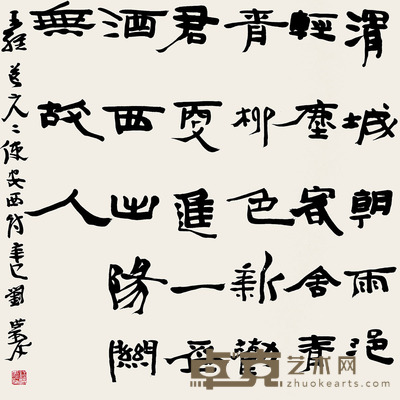 渭城朝雨浥
輕塵客舍青
青柳色新勸
君更進一杯
酒西出陽關
無故人
王維送元二使安西詩辛巳劉
卓克艺术网
zhuokearts.com